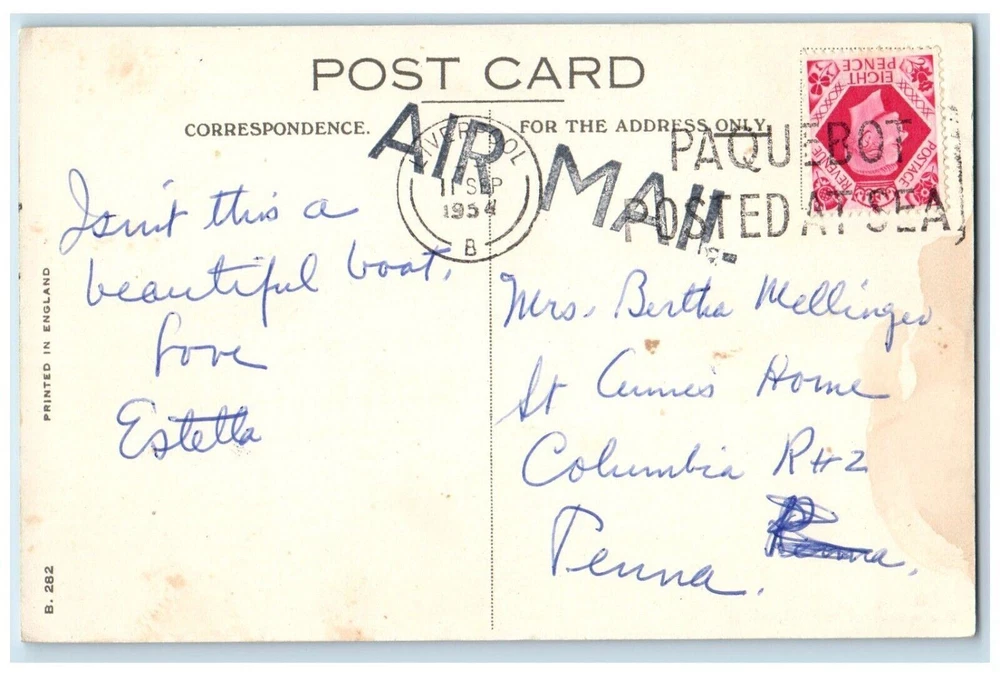 POST CARD
CORRESPONDENCE.
FOR THE ADDRESS ONLY.
AIR MAIL
LIVERPOOL
11 SEP
1954
B
PAQUEBOT
POSTED AT SEA
EIGHT
PENCE
POSTAGE
REVENUE
Isn't this a
beautiful boat.
Love
Estella
Mrs. Bertha Mellinger
St Anne's Home
Columbia R#2
Penna.
PRINTED IN ENGLAND
B. 282